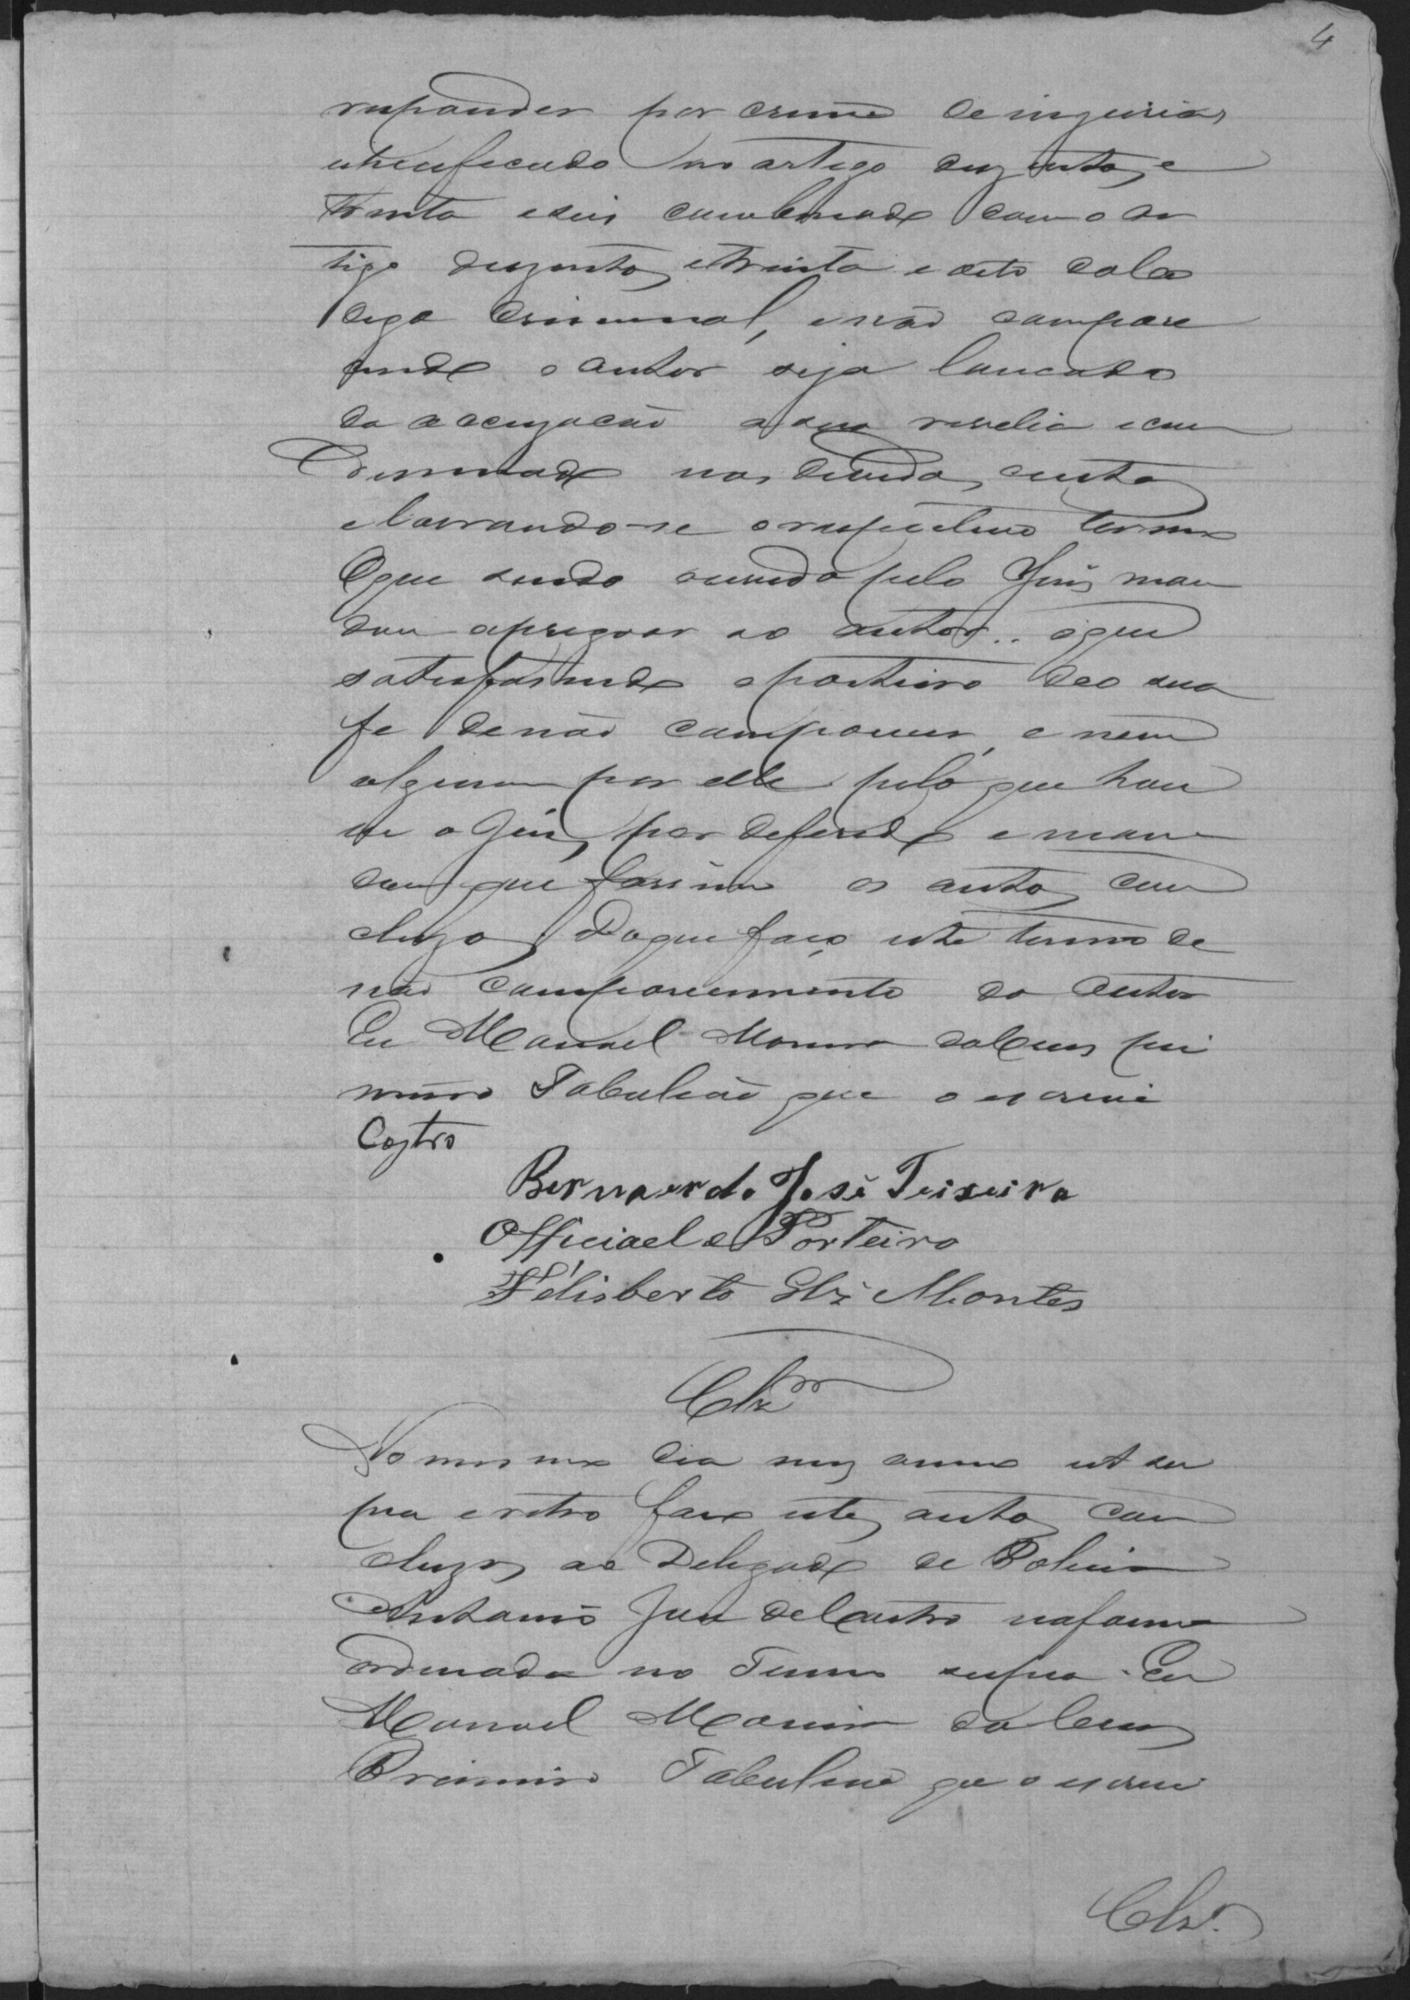 4
responder por crime de injurias
classificado no artigo duzentos e
trinta e seis combinado com o ar
tigo duzentos e trinta e oito do Co
digo Criminal, e não compare
cendo o autor seja lancado
da accuzacão a sua revelia e con
demnado nas devidas custas
e lavrando-se o respectivo termo
O que sendo ouvido pelo Juis man
dou apregoar ao autor.. o que
satisfasendo o porteiro deo sua
fe de não compareser, e nem
alguem por elle pelo que hou
ve o Juis por deferido e man
dou que fossem os autos con
cluzos Do que faço este termo de
não comparecimento do autor
Eu Manoel Moreira da Cruz pri
meiro Tabelião que o escrevi
Castro
Bernaerdo José Teixeira
Officiael e Porteiro
Felisberto Montes
Clz
No mesmo dia mez anno ut su
pra e retro faço estes autos con
cluzos ao Delegado de Policia
Antonio José de Castro na forma
ordenada no Termo supra. Eu
Manoel Moreira da Cruz
Primeiro Tabelião que o escrevi
Clz.